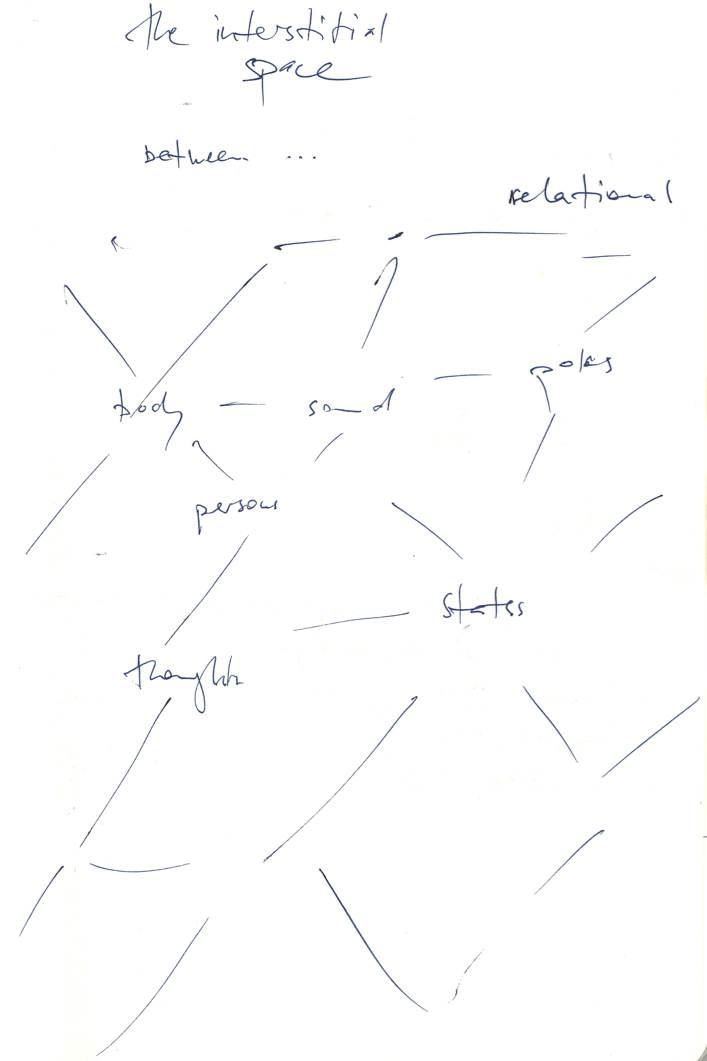 the interstitial
space
between ...
relational
body sound poles
persons
states
thoughts